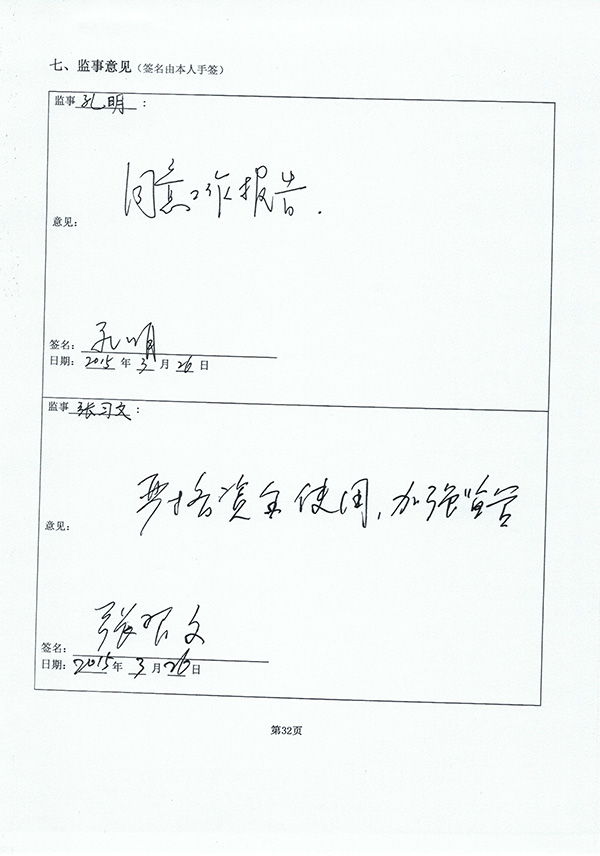 七、监事意见（签名由本人手签）
监事 孔明 ：
同意工作报告.
意见：
签名： 孔明
日期： 2015 年 3 月 26 日
监事 张习文 ：
严格资金使用，加强监管
意见：
签名： 张习文
日期： 2015 年 3 月 26 日
第32页